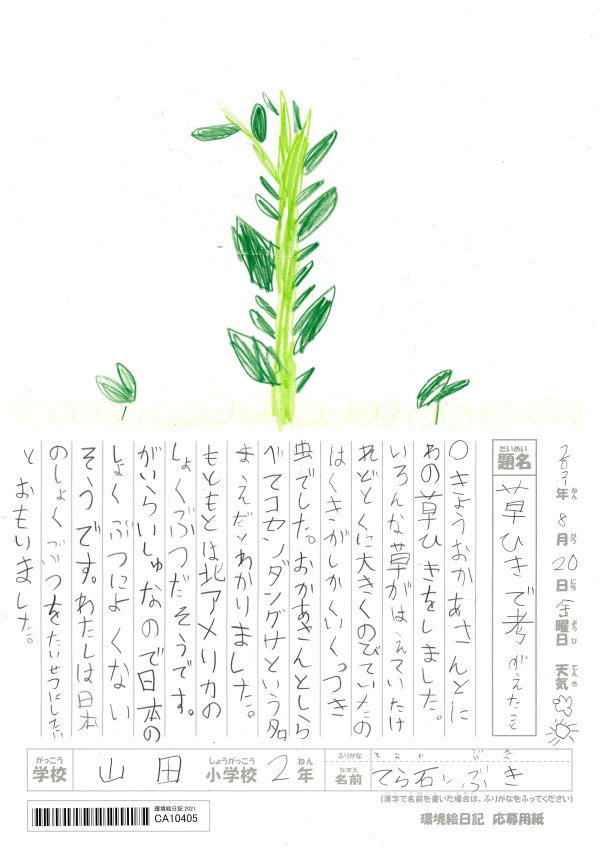 年8月20日金曜日 天気
ねん がつ にち ようび てんき
だいめい
題名 草ひきで考がえたこと
〇きょうおかあさんとに
わの草ひきをしました。
いろんな草がはえていたけ
れどとくに大きくのびていたの
はくきがしかくいくっつき
虫でした。おかあさんとしら
べてコセンダングサという名
まえだとわかりました。
もともとは北アメリカの
しょくぶつだそうです。
がいらいしゅなので日本の
しょくぶつによくない
そうです。わたしは日本
のしょくぶつをたいせつにしたい
とおもいました。
がっこう しょうがっこう ねん ふりがな
学校 山田 小学校 2年
なまえ
名前 てら石いぶき
(漢字で名前を書いた場合は、ふりがなをふってください)
環境絵日記 2021
CA10405
環境絵日記 応募用紙